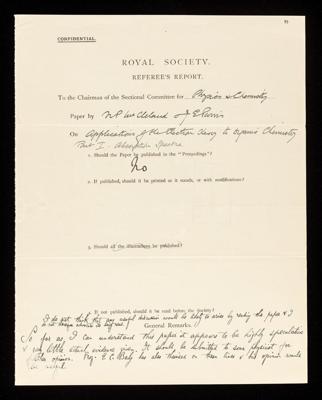 93
CONFIDENTIAL.
ROYAL SOCIETY.
REFEREE'S REPORT.
To the Chairman of the Sectional Committee for Physics & Chemistry
Paper by N P McCleland & J E Purvis
On Application of the Electron theory to Organic Chemistry
Part I. Absorption Spectra
1. Should the Paper be published in the "Proceedings"?
No
2. If published, should it be printed as it stands, or with modifications?
3. Should all the illustrations be published?
4. If not published, should it be read before the Society?
I do not think that any useful discussion would be likely to arise by reading the paper & I
do not
General Remarks.
So far as I can understand this paper it appears to be highly speculative
& very little actual evidence given. It should be submitted to some physicist for
further opinion. Prof. E. C. Baly has also theories on these lines & his opinion would
be